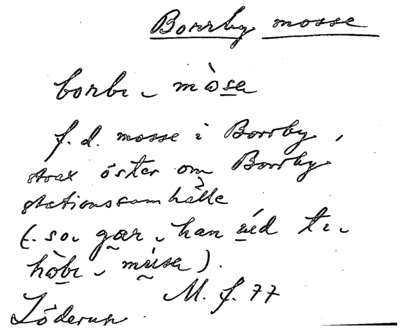 Borrby mosse
borbı ˗ mòsa
f.d. mosse i Borrby,
strax öster om Borrby
stationssamhälle
(.so. gær ˗ han véd tı ˗
hòbı ˗ mùsa).
M. f. 77
Löderup